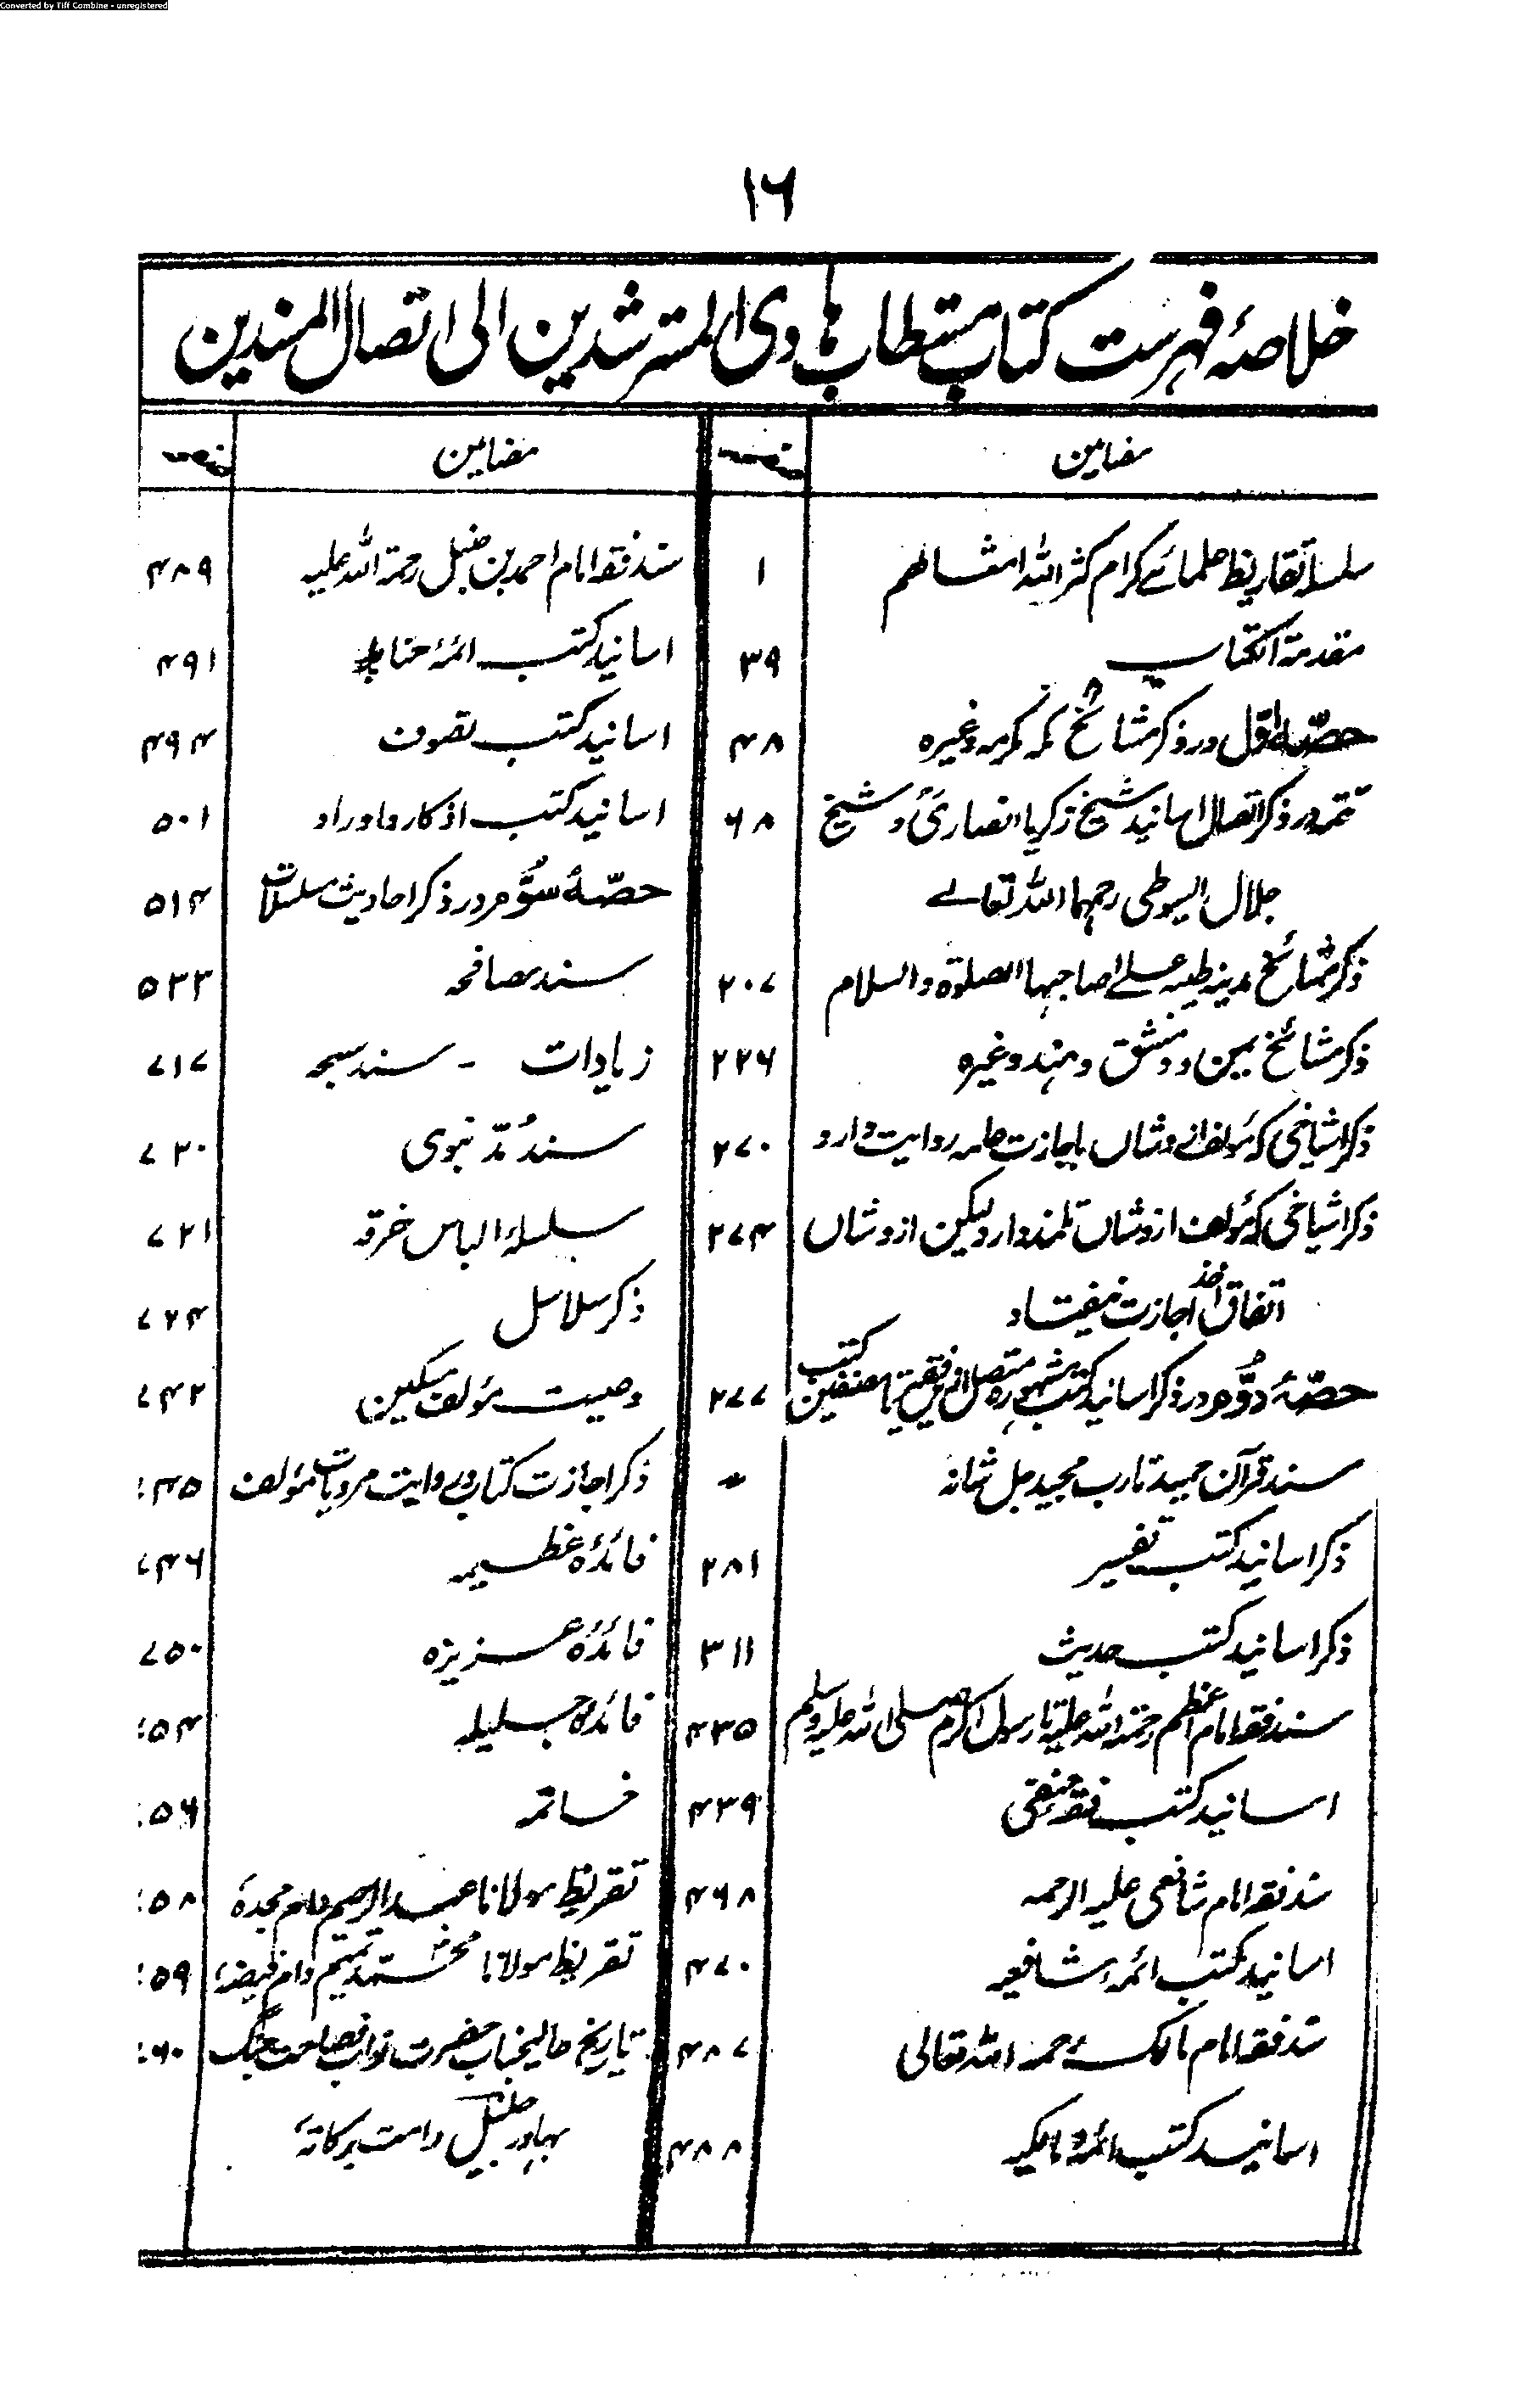 Converted by Tiff Combine - unregistered
۱۶
خلاصۂ فہرست کتاب مستطاب ہادی المسترشدین الی اتصال المسندین
مضامین صفحہ
سلسلۂ تقاریظ علمائے کرام کثر اللہ امثالهم ۱
مقدمۃ الکتاب ۳۹
حصّۂ اوّل در ذکر مشائخ مکہ مکرمہ وغیرہ ۴۸
تتمہ در ذکر اتصال اسانید شیخ زکریا انصاریؒ و شیخ ۶۸
جلال السیوطی رحمہما اللہ تعالے
ذکر مشائخ مدینہ طیبہ علےٰ صاحبہا الصلوۃ والسلام ۲۰۷
ذکر مشائخ یمن و دمشق و ہند وغیرہ ۲۲۶
ذکر اشیاخی کہ مؤلف از وشاں باجازت عامہ روایت دارد ۲۷۰
ذکر اشیاخی کہ مؤلف از وشاں تلمذ دارد لیکن از وشاں ۲۷۴
اتفاق اخذ اجازت نیفتاد
حصّۂ دوُّم در ذکر اسانید کتب مشہورہ متصل ازیں فقیر تا مصنفین کتب ۲۷۷
سند قرآن حمید تا رب مجید جل شانہ 〃
ذکر اسانید کتب تفسیر ۲۸۱
ذکر اسانید کتب حدیث ۳۱۱
سند فقہ امام اعظم رحمۃ اللہ علیہ تا رسول اکرم صلی اللہ علیہ وسلم ۴۳۵
اسانید کتب فقہ حنفی ۴۳۹
سند فقہ امام شافعی علیہ الرحمہ ۴۶۸
اسانید کتب ائمہ شافعیہ ۴۷۰
سند فقہ امام مالک رحمہ اللہ تعالی ۴۸۷
اسانید کتب ائمہ مالکیہ ۴۸۸
مضامین صفحہ
سند فقہ امام احمد بن حنبل رحمۃ اللہ علیہ ۴۸۹
اسانید کتب ائمۂ حنابلہ ۴۹۱
اسانید کتب تصوف ۴۹۴
اسانید کتب اذکار و اوراد ۵۰۱
حصّۂ سوُّم در ذکر احادیث مسلسلات ۵۱۴
سند مصافحہ ۵۳۳
زیادات - سند سبحہ ۷۱۷
سند مُدّ نبوی ۷۲۰
سلسلۂ الباس خرقہ ۷۲۱
ذکر سلاسل ۷۲۴
وصیت مؤلف مسکین ۷۴۲
ذکر اجازت کتاب و روایت مرویات مؤلف ۷۴۵
فائدۂ عظیمہ ۷۴۶
فائدۂ عزیزہ ۷۵۰
فائدۂ جلیلہ ۷۵۴
خاتمہ ۷۵۶
تقریظ مولانا عبد الرحیم دام مجدہٗ ۷۵۸
تقریظ مولانا محمد تمیم دام فیضہٗ ۷۵۹
تاریخ عالیجناب حضرت نواب فصاحت جنگ ۷۶۰
بہادر جلیل دامت برکاتہٗ